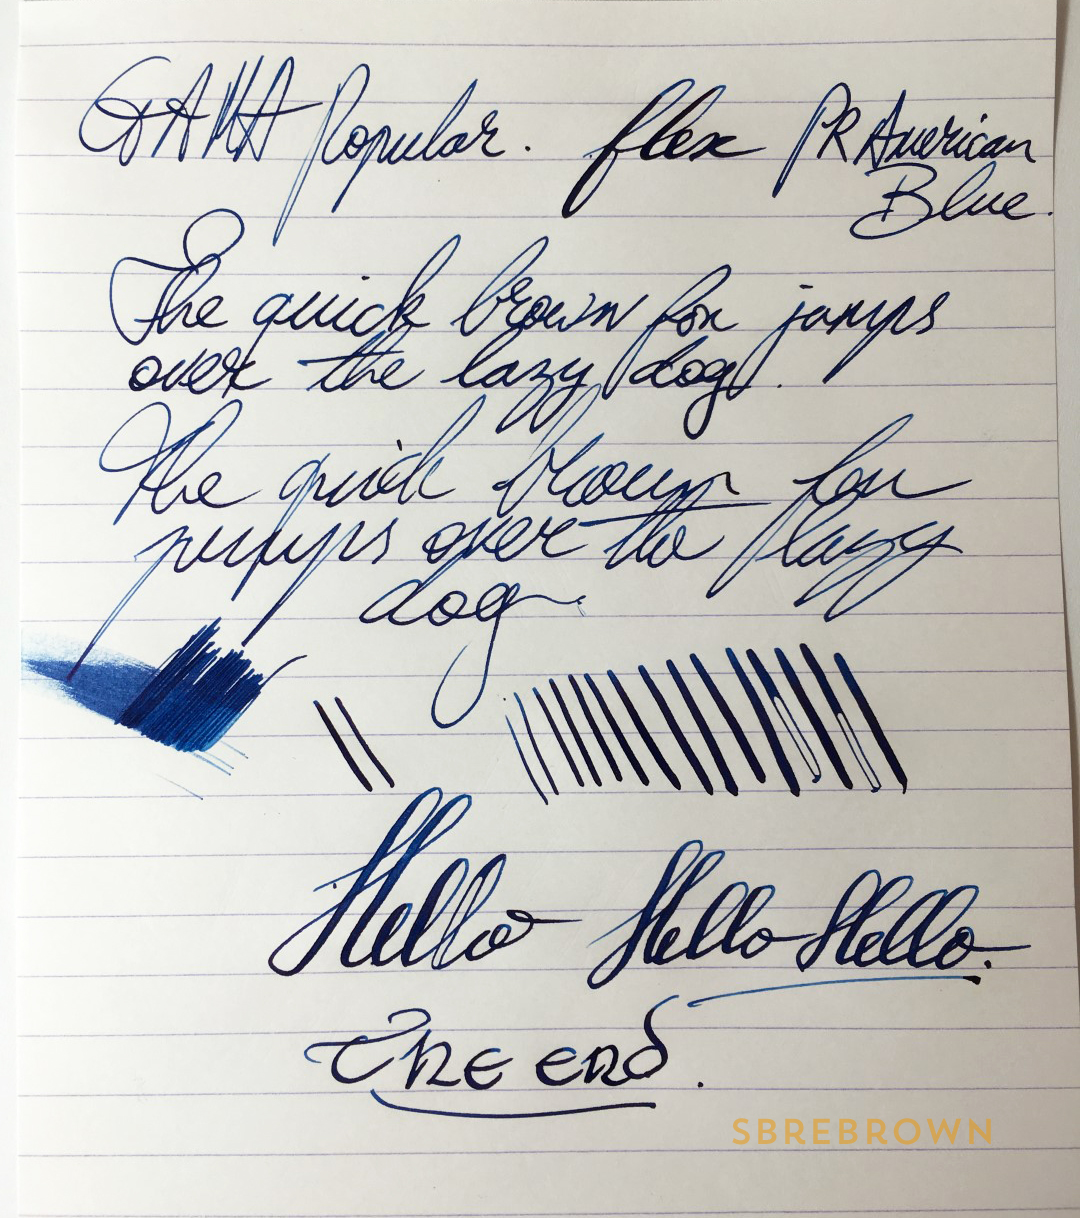 GAMA Popular. flex PR American
Blue.
The quick brown fox jumps
over the lazy dog.
The quick brown fox
jumps over the lazy
dog
Hello Hello Hello.
The end.
SBREBROWN